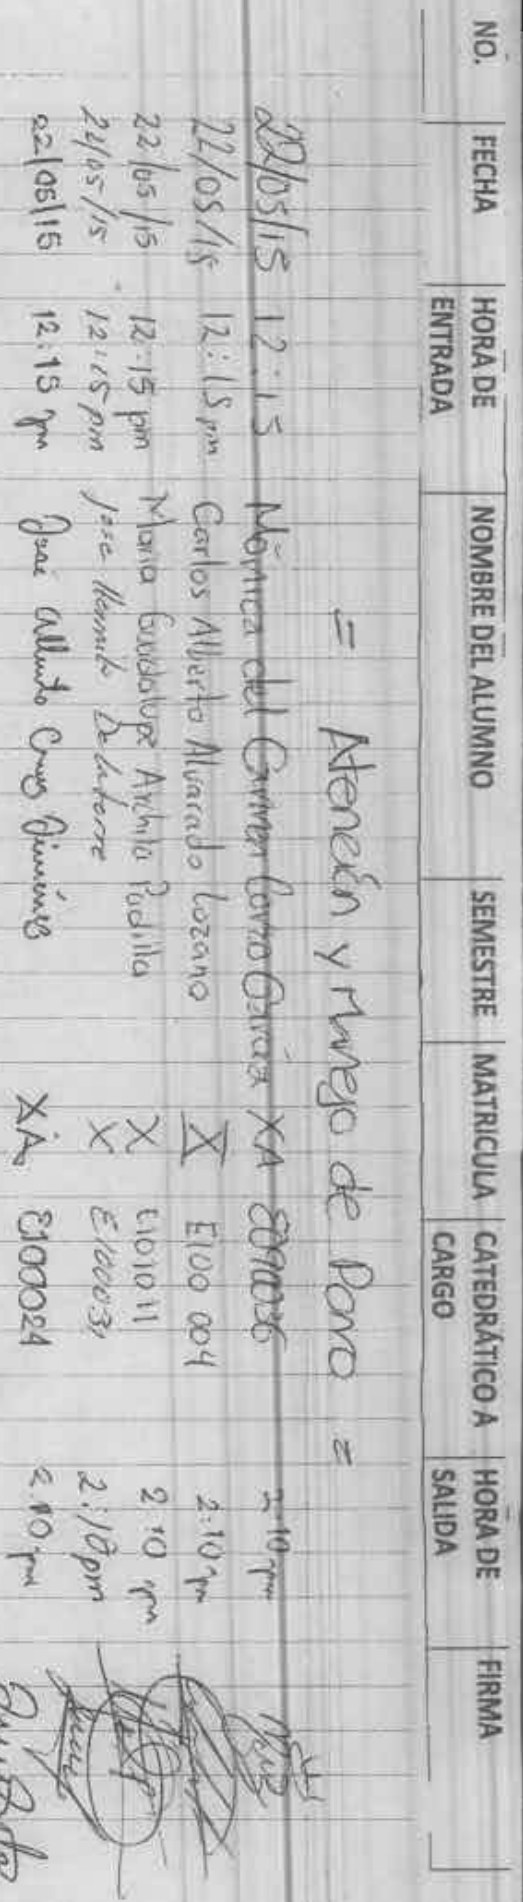 NO. FECHA HORA DE ENTRADA NOMBRE DEL ALUMNO SEMESTRE MATRICULA CATEDRÁTICO A CARGO HORA DE SALIDA FIRMA
= Atención y Manejo de Parto =
22/05/15 12:15 Mónica del Carmen XA 2:10 pm
22/05/15 12:15 pm Carlos Alberto Alvarado Lozano X E100 004 2:10 pm
22/05/15 12:15 pm Maria Guadalupe Archila Padilla X 2:10 pm
22/05/15 12:15 pm Jose X 2:10 pm
22/05/15 12:15 pm José Alberto Cruz Jiménez XA E100024 2:10 pm